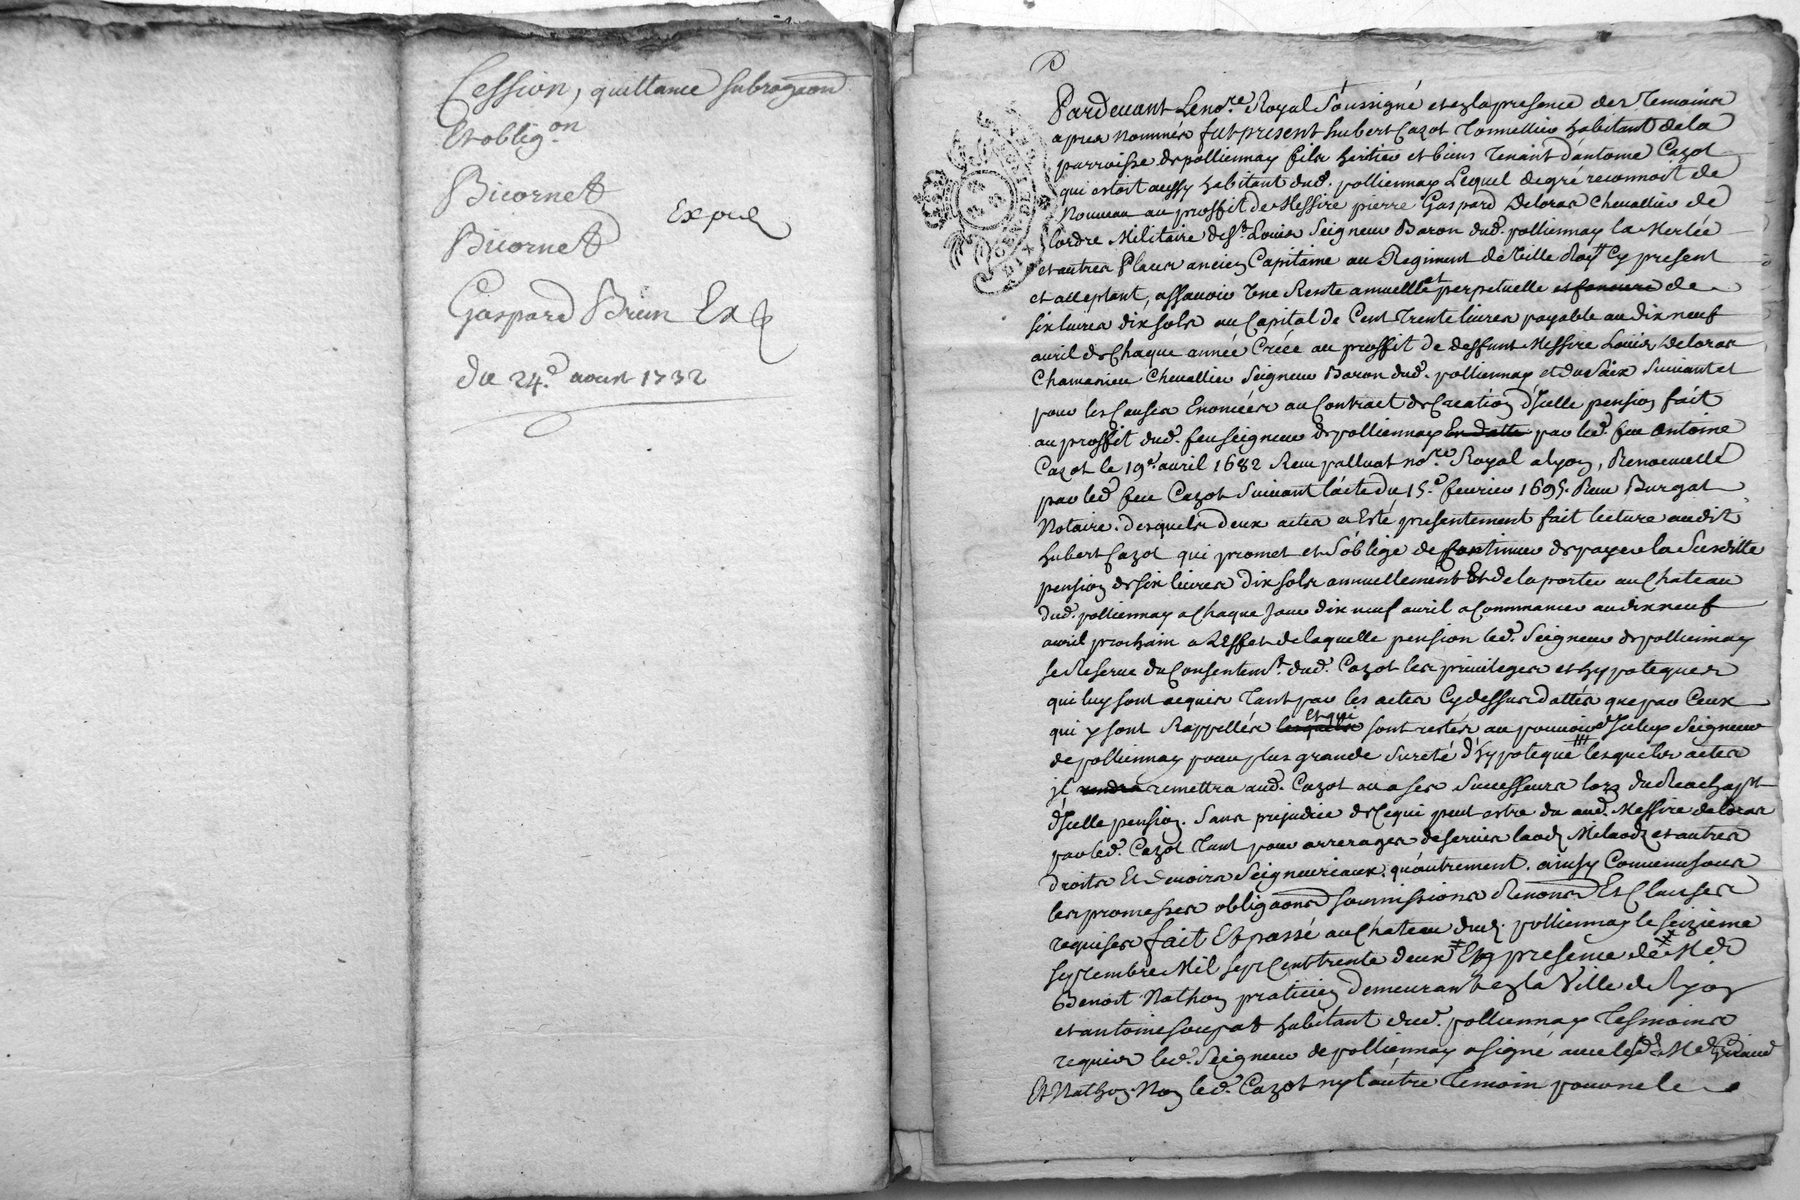 Cession, quittance subrogaon
Et oblig.on
Bicornet
Expié
Bicornet
Gaspard Brun Ex
du 24.e aoust 1732
Pardevant Le no.re Royal Soussigné et en la presence des Temoins
apres nommés fut present hubert Cazot Tonnellier habitant de la
parroisse de polliennay fils heritier et biens Tenant d'antoine Cazot
qui estoit aussy habitant dud. polliennay Lequel de gré reconnoit de
Nouveau au proffit de Messire pierre Gaspard Deloras Chevallier de
l'ordre Militaire de St. Louis Seigneur Baron dud. polliennay la Merlée
et autres Places ancien Capitaine au Regiment de Tille Cy present
et acceptant, assavoir Une Rente annuelle et perpetuelle de
six livres dix sols au Capital de Cent Trente livres payable au dix neuf
avril de Chaque année Créée au proffit de deffunt Messire Louis Deloras
Chamanieu Chevallier Seigneur Baron dud. polliennay et du Saix Suivant et
pour les Causes Enoncées au Contract de Creation d'Icelle pension fait
au proffit dud. feu seigneur de polliennay En datte par led. feu antoine
Cazot le 19.e avril 1682 Reçu palluat no.re Royal a lyon, Renouvellé
par led. feu Cazot Suivant l'acte du 15.e fevrier 1695. Reçu Burgat
Notaire. desquels deux actes a Esté presentement fait lecture audit
hubert Cazot qui promet et s'oblige de Continuer de payer la Susditte
pension de six livres dix sols annuellement Et de la porter au Chateau
dud. polliennay a Chaque Jour dix neuf avril a Commancer au dix neuf
avril prochain a L'Effet de laquelle pension led. Seigneur de polliennay
se Reserve du Consentemt. dud. Cazot les privileges et hypoteques
qui luy sont acquis Tant par les actes Cy dessus dattés que par Ceux
qui y sont Rappellés lesquels et que sont restés au pouvoir d'Iceluy Seigneur
de polliennay pour plus grande Sureté d'hypoteque lesquels actes
il rendra remettra aud. Cazot ou a ses Successeurs lors du Reachapt
d'Icelle pension. Sans prejudice de Ce qui peut estre du aud. Messire deloras
par led. Cazot Tant pour arrerages de servis laods Milaods et autres
droits Et devoirs Seigneuriaux, qu'autrement. ainsy Convenu sous
les promesses obligaons soumissions Renons Et Clauses
requises fait Et passé au Chateau dud. polliennay le seizieme
septembre Mil sept Cent trente deux En presence de Me
Benoit Nathon praticien demeurant en la Ville de Lyon
et antoine soupat habitant dud. polliennay Tesmoins
requis led. Seigneur de polliennay a signé avec lesd. Me Giraud
Et Nathon. Non led. Cazot ny l'autre Temoin pour ne le